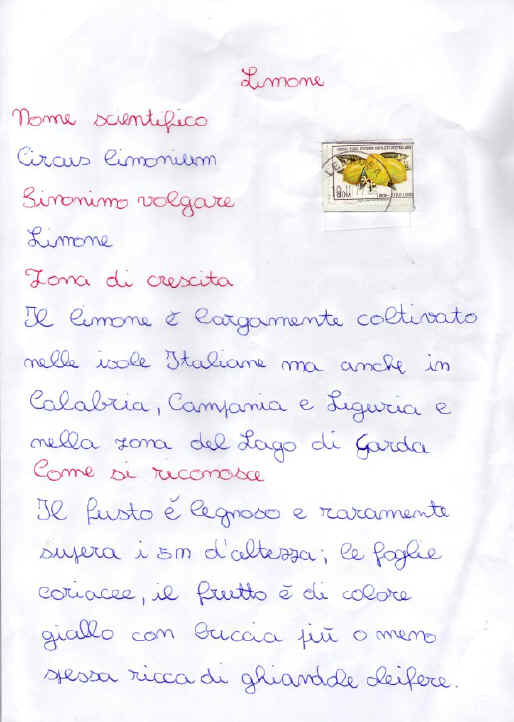 Limone
Nome scientifico
Circus limonium
Sinonimo volgare
Limone
Zona di crescita
Il limone è largamente coltivato
nelle isole Italiane ma anche in
Calabria, Campania e Liguria e
nella zona del Lago di Garda
Come si riconosce
Il fusto è legnoso e raramente
supera i 5m d'altezza; le foglie
coriacee, il frutto è di colore
giallo con buccia più o meno
spessa ricca di ghiandole oleifere.